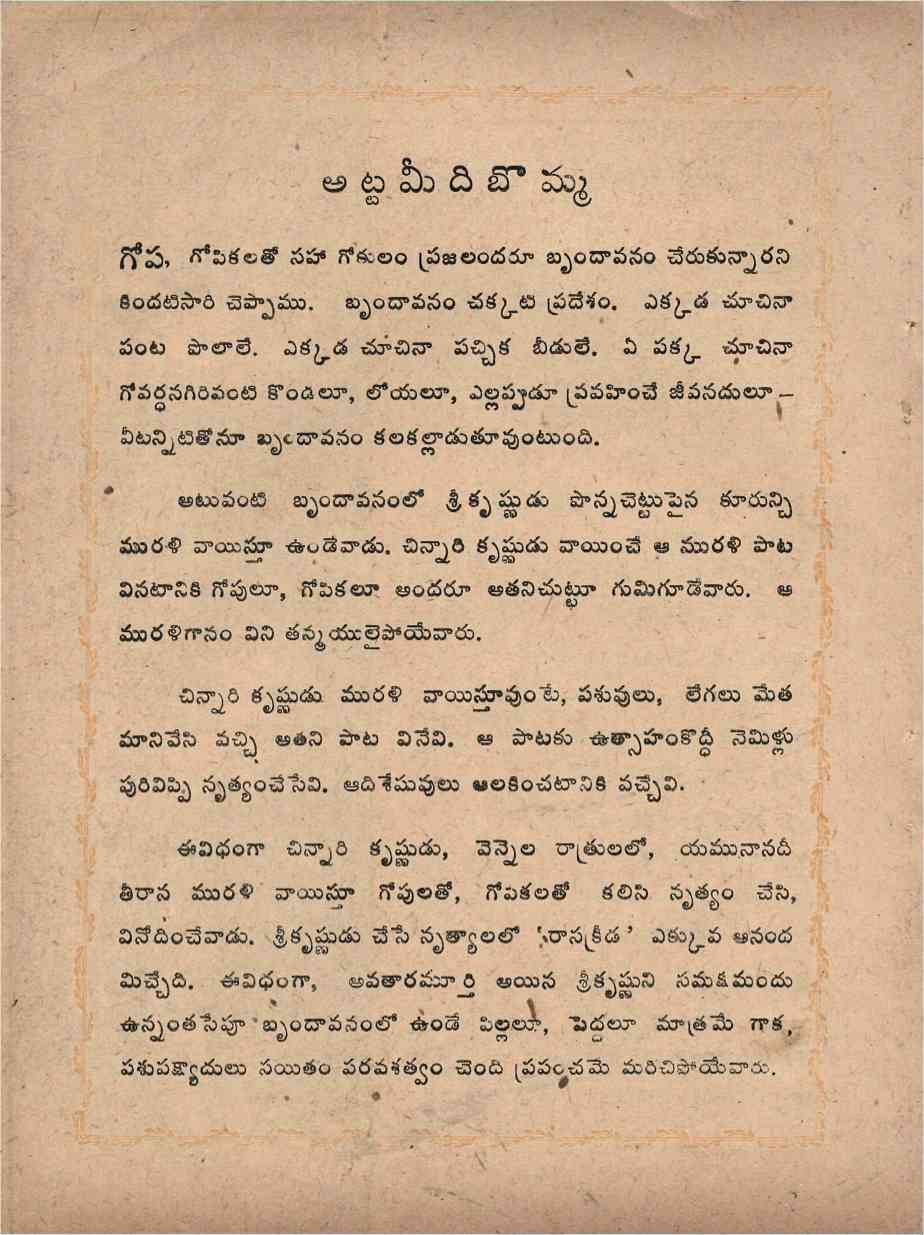 అట్టమీదిబొమ్మ
గోప, గోపికలతో సహా గోకులం ప్రజలందరూ బృందావనం చేరుకున్నారని
కిందటిసారి చెప్పాము. బృందావనం చక్కటి ప్రదేశం. ఎక్కడ చూచినా
పంట పొలాలే. ఎక్కడ చూచినా పచ్చిక బీడులే. ఏ పక్క చూచినా
గోవర్ధనగిరివంటి కొండలూ, లోయలూ, ఎల్లప్పుడూ ప్రవహించే జీవనదులూ –
వీటన్నిటితోనూ బృందావనం కలకల్లాడుతూవుంటుంది.
అటువంటి బృందావనంలో శ్రీకృష్ణుడు పొన్నచెట్టుపైన కూరుచ్ని
మురళి వాయిస్తూ ఉండేవాడు. చిన్నారి కృష్ణుడు వాయించే ఆ మురళి పాట
వినటానికి గోపులూ, గోపికలూ అందరూ అతనిచుట్టూ గుమిగూడేవారు. ఆ
మురళిగానం విని తన్మయులైపోయేవారు.
చిన్నారి కృష్ణుడు మురళి వాయిస్తూవుంటే, పశువులు, లేగలు మేత
మానివేసి వచ్చి అతని పాట వినేవి. ఆ పాటకు ఉత్సాహంకొద్దీ నెమిళ్లు
పురివిప్పి నృత్యంచేసేవి. ఆదిశేషువులు ఆలకించటానికి వచ్చేవి.
ఈవిధంగా చిన్నారి కృష్ణుడు, వెన్నెల రాత్రులలో, యమునానదీ
తీరాన మురళి వాయిస్తూ గోపులతో, గోపికలతో కలిసి నృత్యం చేసి,
వినోదించేవాడు. శ్రీకృష్ణుడు చేసే నృత్యాలలో 'రాసక్రీడ' ఎక్కువ ఆనంద
మిచ్చేది. ఈవిధంగా, అవతారమూర్తి అయిన శ్రీకృష్ణుని సమక్షమందు
ఉన్నంతసేపూ బృందావనంలో ఉండే పిల్లలూ, పెద్దలూ మాత్రమే గాక,
పశుపక్ష్యాదులు సయితం పరవశత్వం చెంది ప్రపంచమె మరిచిపోయేవారు.